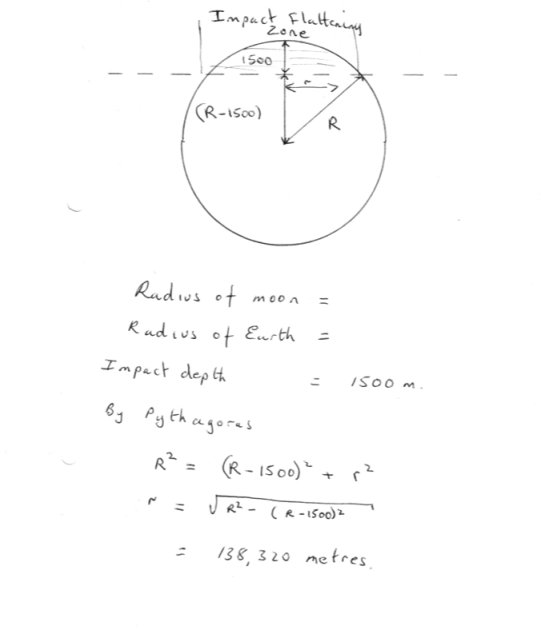 Impact Flattening
Zone
1500
r
(R-1500)
R
Radius of moon =
Radius of Earth =
Impact depth = 1500 m.
By Pythagoras
R² = (R-1500)² + r²
r = √R² - (R-1500)²
= 138,320 metres.